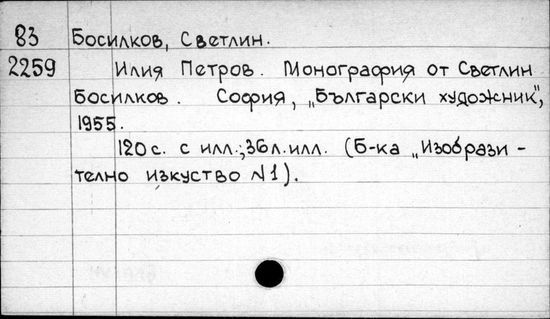 83 Босилков, Светлин.
2259 Илия Петров. Монография от Светлин
Босилков. София, „Български художник",
1955.
120 с. с илл.; 36 л. илл. (Б-ка „Изобрази-
телно изкуство №1).